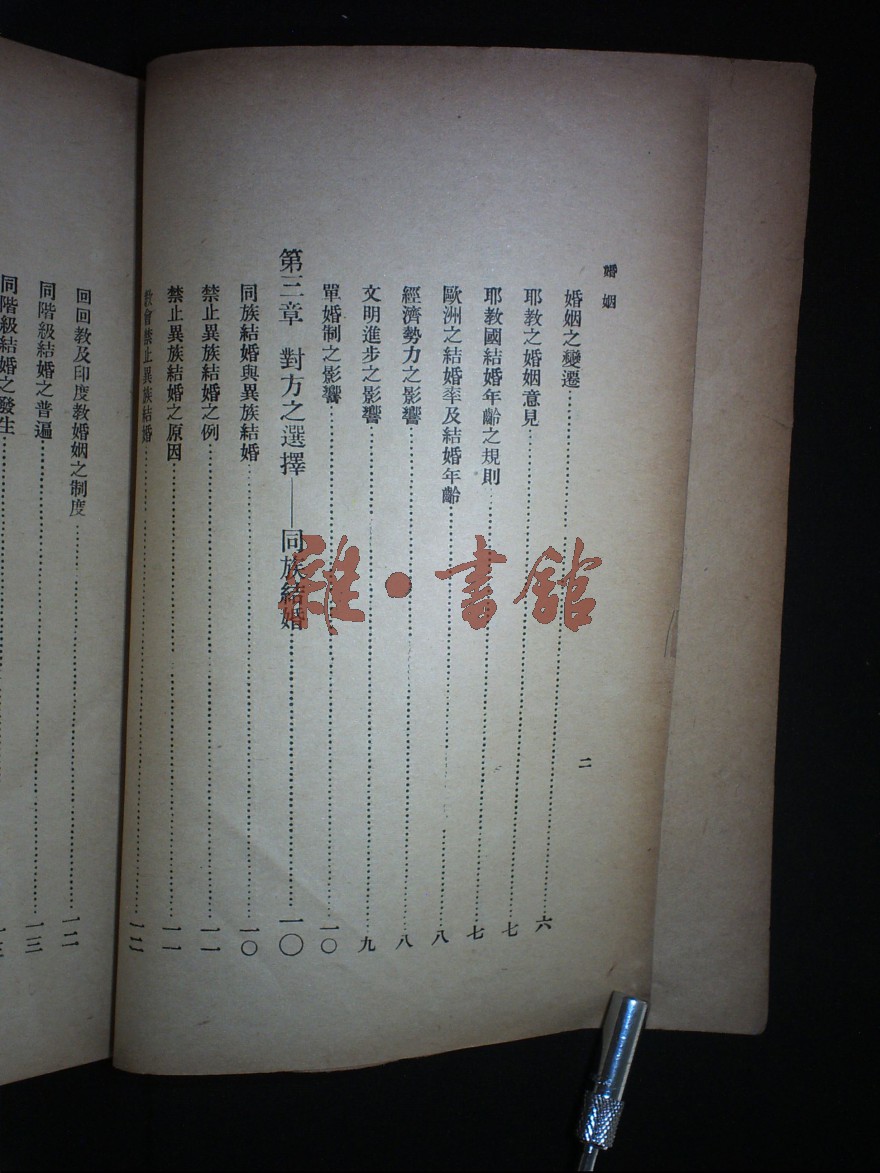 婚姻
二
婚姻之變遷……六
耶教之婚姻意見……七
耶教國結婚年齡之規則……七
歐洲之結婚率及結婚年齡……八
經濟勢力之影響……八
文明進步之影響……九
單婚制之影響……一〇
第三章 對方之選擇——同族結婚……一〇
同族結婚與異族結婚……一〇
禁止異族結婚之例……一一
禁止異族結婚之原因……一一
教會禁止異族結婚……一二
回回教及印度教婚姻之制度……一二
同階級結婚之普遍……一三
同階級結婚之發生……一三
雜·書館